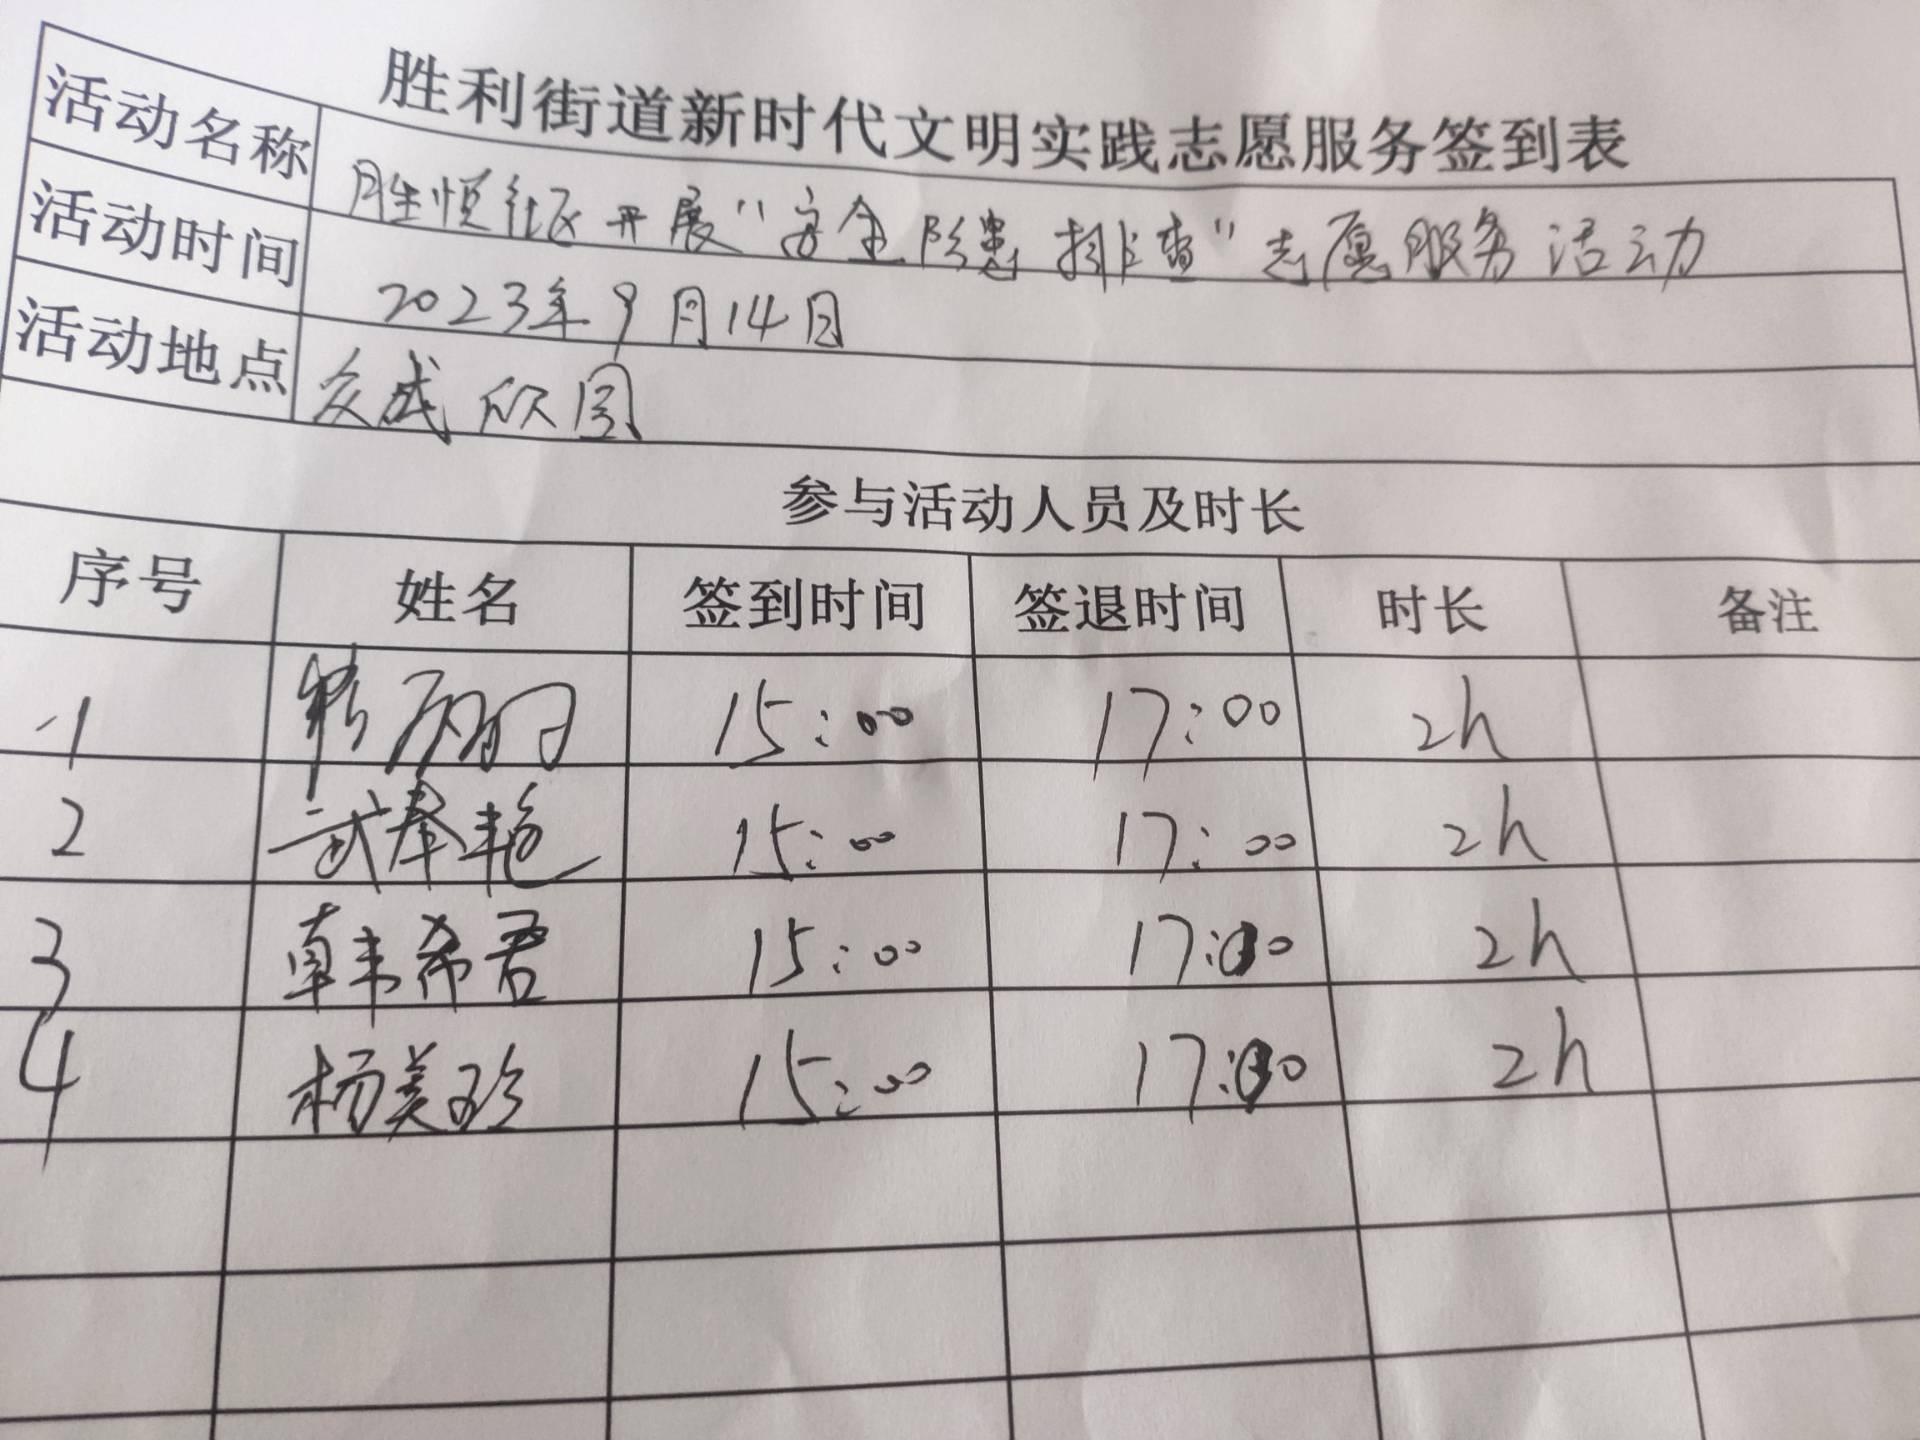 胜利街道新时代文明实践志愿服务签到表
活动名称 胜恒社区开展"安全隐患排查"志愿服务活动
活动时间 2023年9月14日
活动地点 众成欣园
参与活动人员及时长
序号 姓名 签到时间 签退时间 时长 备注
1 15:00 17:00 2h
2 武奉艳 15:00 17:00 2h
3 韩希君 15:00 17:00 2h
4 杨美玲 15:00 17:00 2h